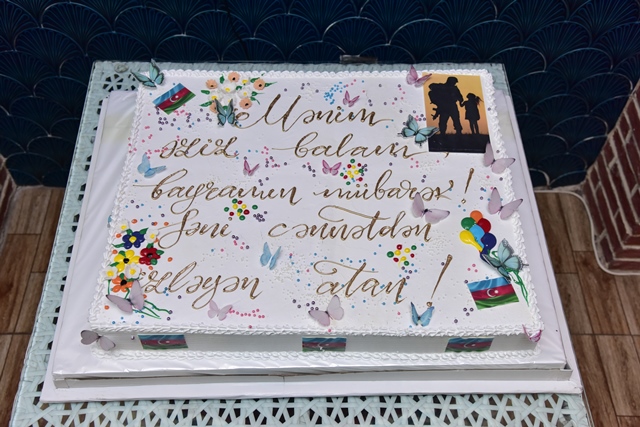 Mənim
əziz balam,
bayramın mübarək!
Səni cənnətdən
izləyən atan!